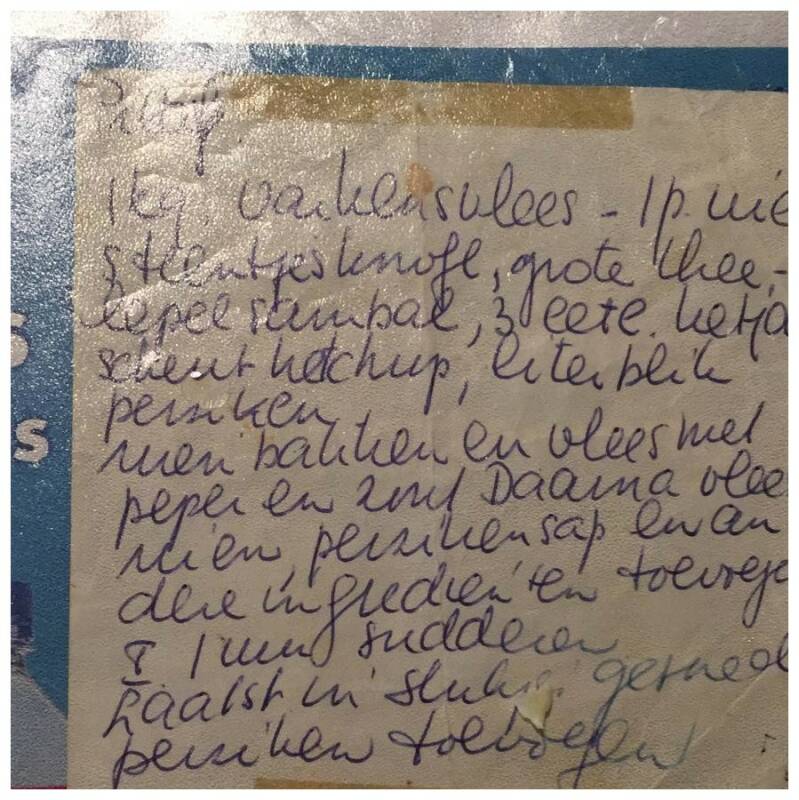 Pittig.
1 kg. varkensvlees - 1 p. uie
5 teentjes knofl, grote thee-
lepel sambal, 3 eetl. ketja
scheut ketchup, literblik
perziken
uien bakken en vlees met
peper en zout Daarna vlee
uien, perzikensap en an
dere ingrediënten toevoege
± 1 uur sudderen
Laatst in stukj. gesned
perziken toevoegen
S
s